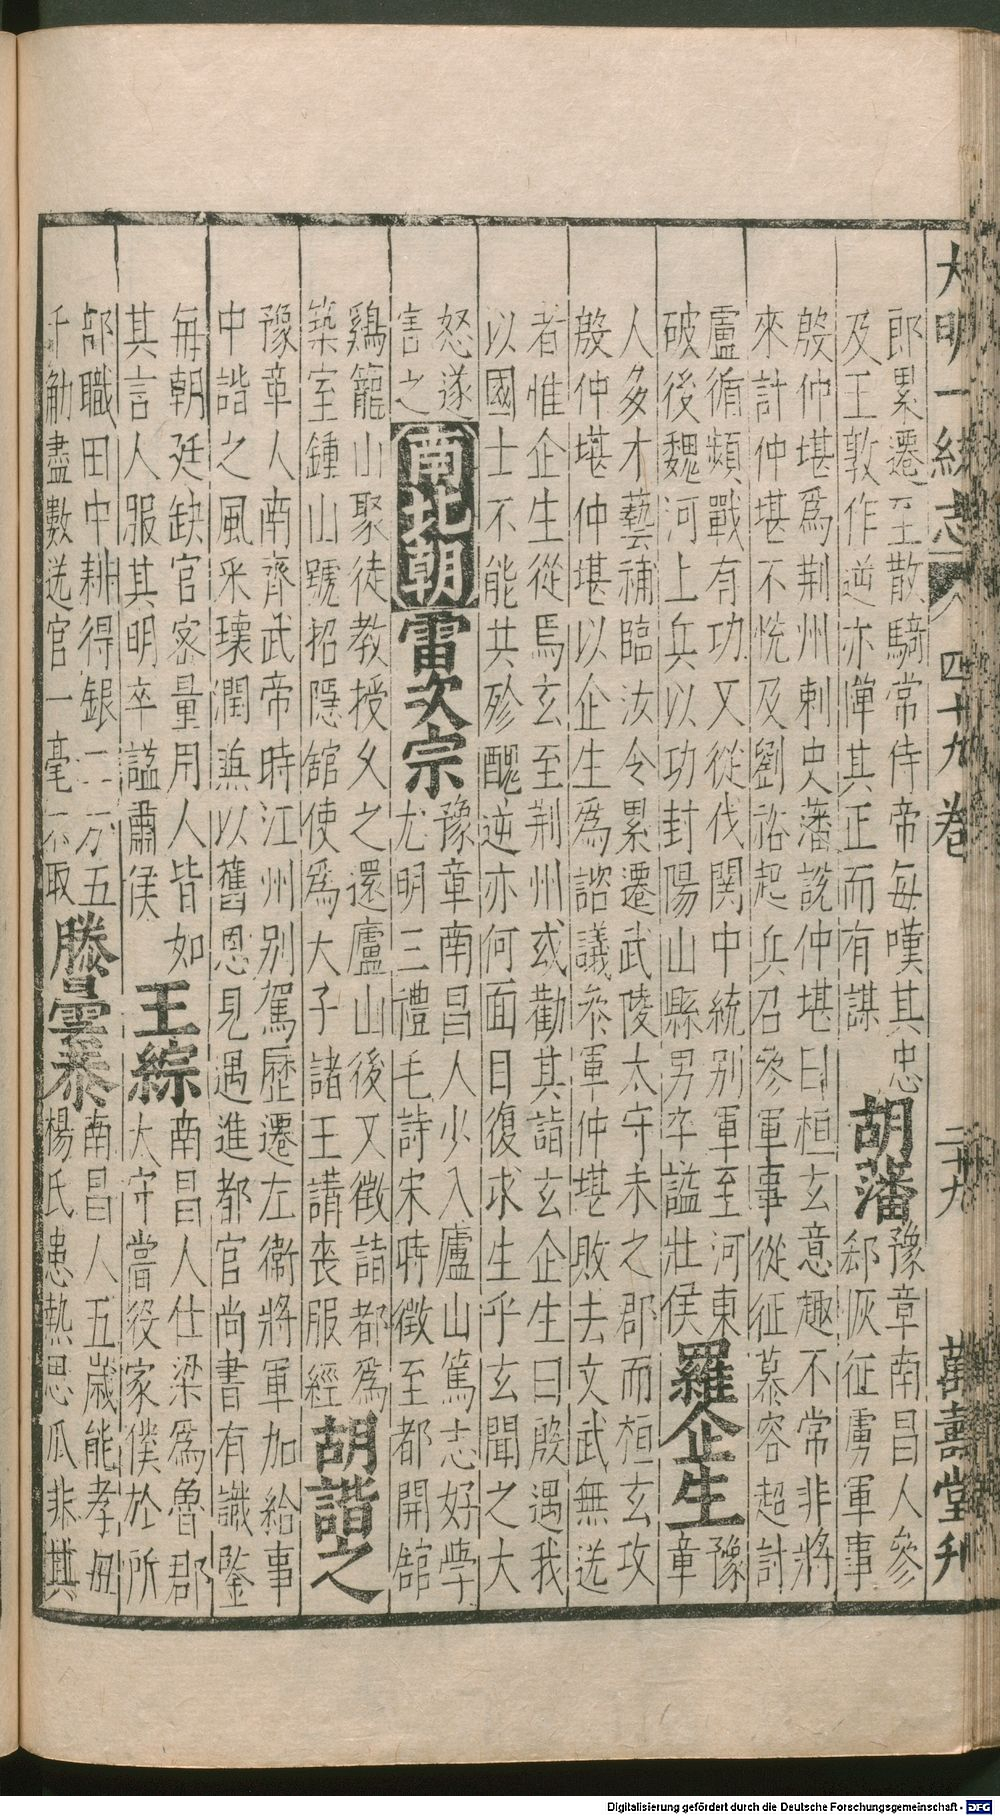 大明一統志 四十九卷 二十九 萬壽堂刋
郎累遷至散騎常侍帝每嘆其忠
及王敦作逆亦憚其正而有謀
胡藩
豫章南昌人參
郄恢征虜軍事
殷仲堪爲荆州刺史藩說仲堪曰桓玄意趣不常非將
來計仲堪不悅及劉裕起兵召參軍事從征慕容超討
盧循頻戰有功又從伐関中統别軍至河東
破後魏河上兵以功封陽山縣男卒謚壯侯
羅企生
豫
章
人多才藝補臨汝令累遷武陵太守未之郡而桓玄攻
殷仲堪仲堪以企生爲諮議參軍仲堪敗去文武無送
者惟企生從焉玄至荆州或勸其詣玄企生曰殷遇我
以國士不能共殄醜逆亦何面目復求生乎玄聞之大
怒遂
害之
南北朝
雷次宗
豫章南昌人少入廬山篤志好學
尤明三禮毛詩宋時徵至都開舘
鷄籠山聚徒教授久之還廬山後又徵詣都爲
築室鍾山號招隱舘使爲大子諸王講喪服經
胡諧之
豫章人南齊武帝時江州别駕歷遷左衛將軍加給事
中諧之風采瓌潤兼以舊恩見遇進都官尚書有識鑒
每朝廷缺官密量用人皆如
其言人服其明卒謚肅侯
王綜
南昌人仕梁爲魯郡
大守當役家僕於所
部職田中耕得銀二万五
千觔盡數送官一毫不取
滕曇恭
南昌人五歲能孝母
楊氏患熱思瓜非其
Digitalisierung gefördert durch die Deutsche Forschungsgemeinschaft - DFG